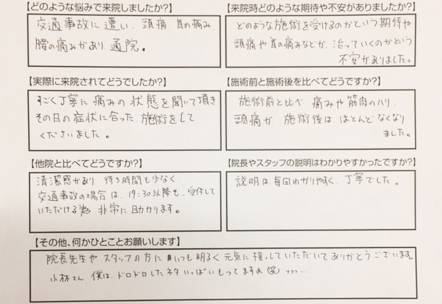 【どのような悩みで来院しましたか?】
交通事故に遭い、頭痛 首の痛み
腰の痛みがあり 通院。
【来院時どのような期待や不安がありましたか?】
どのような施術を受けるのかという期待や
頭痛や首の痛みなどが、治っていくのかという
不安がありました。
【実際に来院されてどうでしたか?】
すごく丁寧に痛みの状態を聞いて頂き
その日の症状に合った、施術をして
くださいました。
【施術前と施術後を比べてどうですか?】
施術前と比べ 痛みや筋肉のハリ、
頭痛が 施術後は ほとんどなくなり
ました。
【他院と比べてどうですか?】
清潔感があり 待ち時間も少なく
交通事故の場合は、19:30以降も、受付して
いただける為 非常に助かります。
【院長やスタッフの説明はわかりやすかったですか?】
説明は毎回わかりやすく、丁寧でした。
【その他、何かひとことお願いします】
院長先生や スタッフの方に いつも明るく 元気に 接していただいてありがとうございます。
小林さん 僕は ドロドロしたネタ いっぱいもってますよ (笑) ....